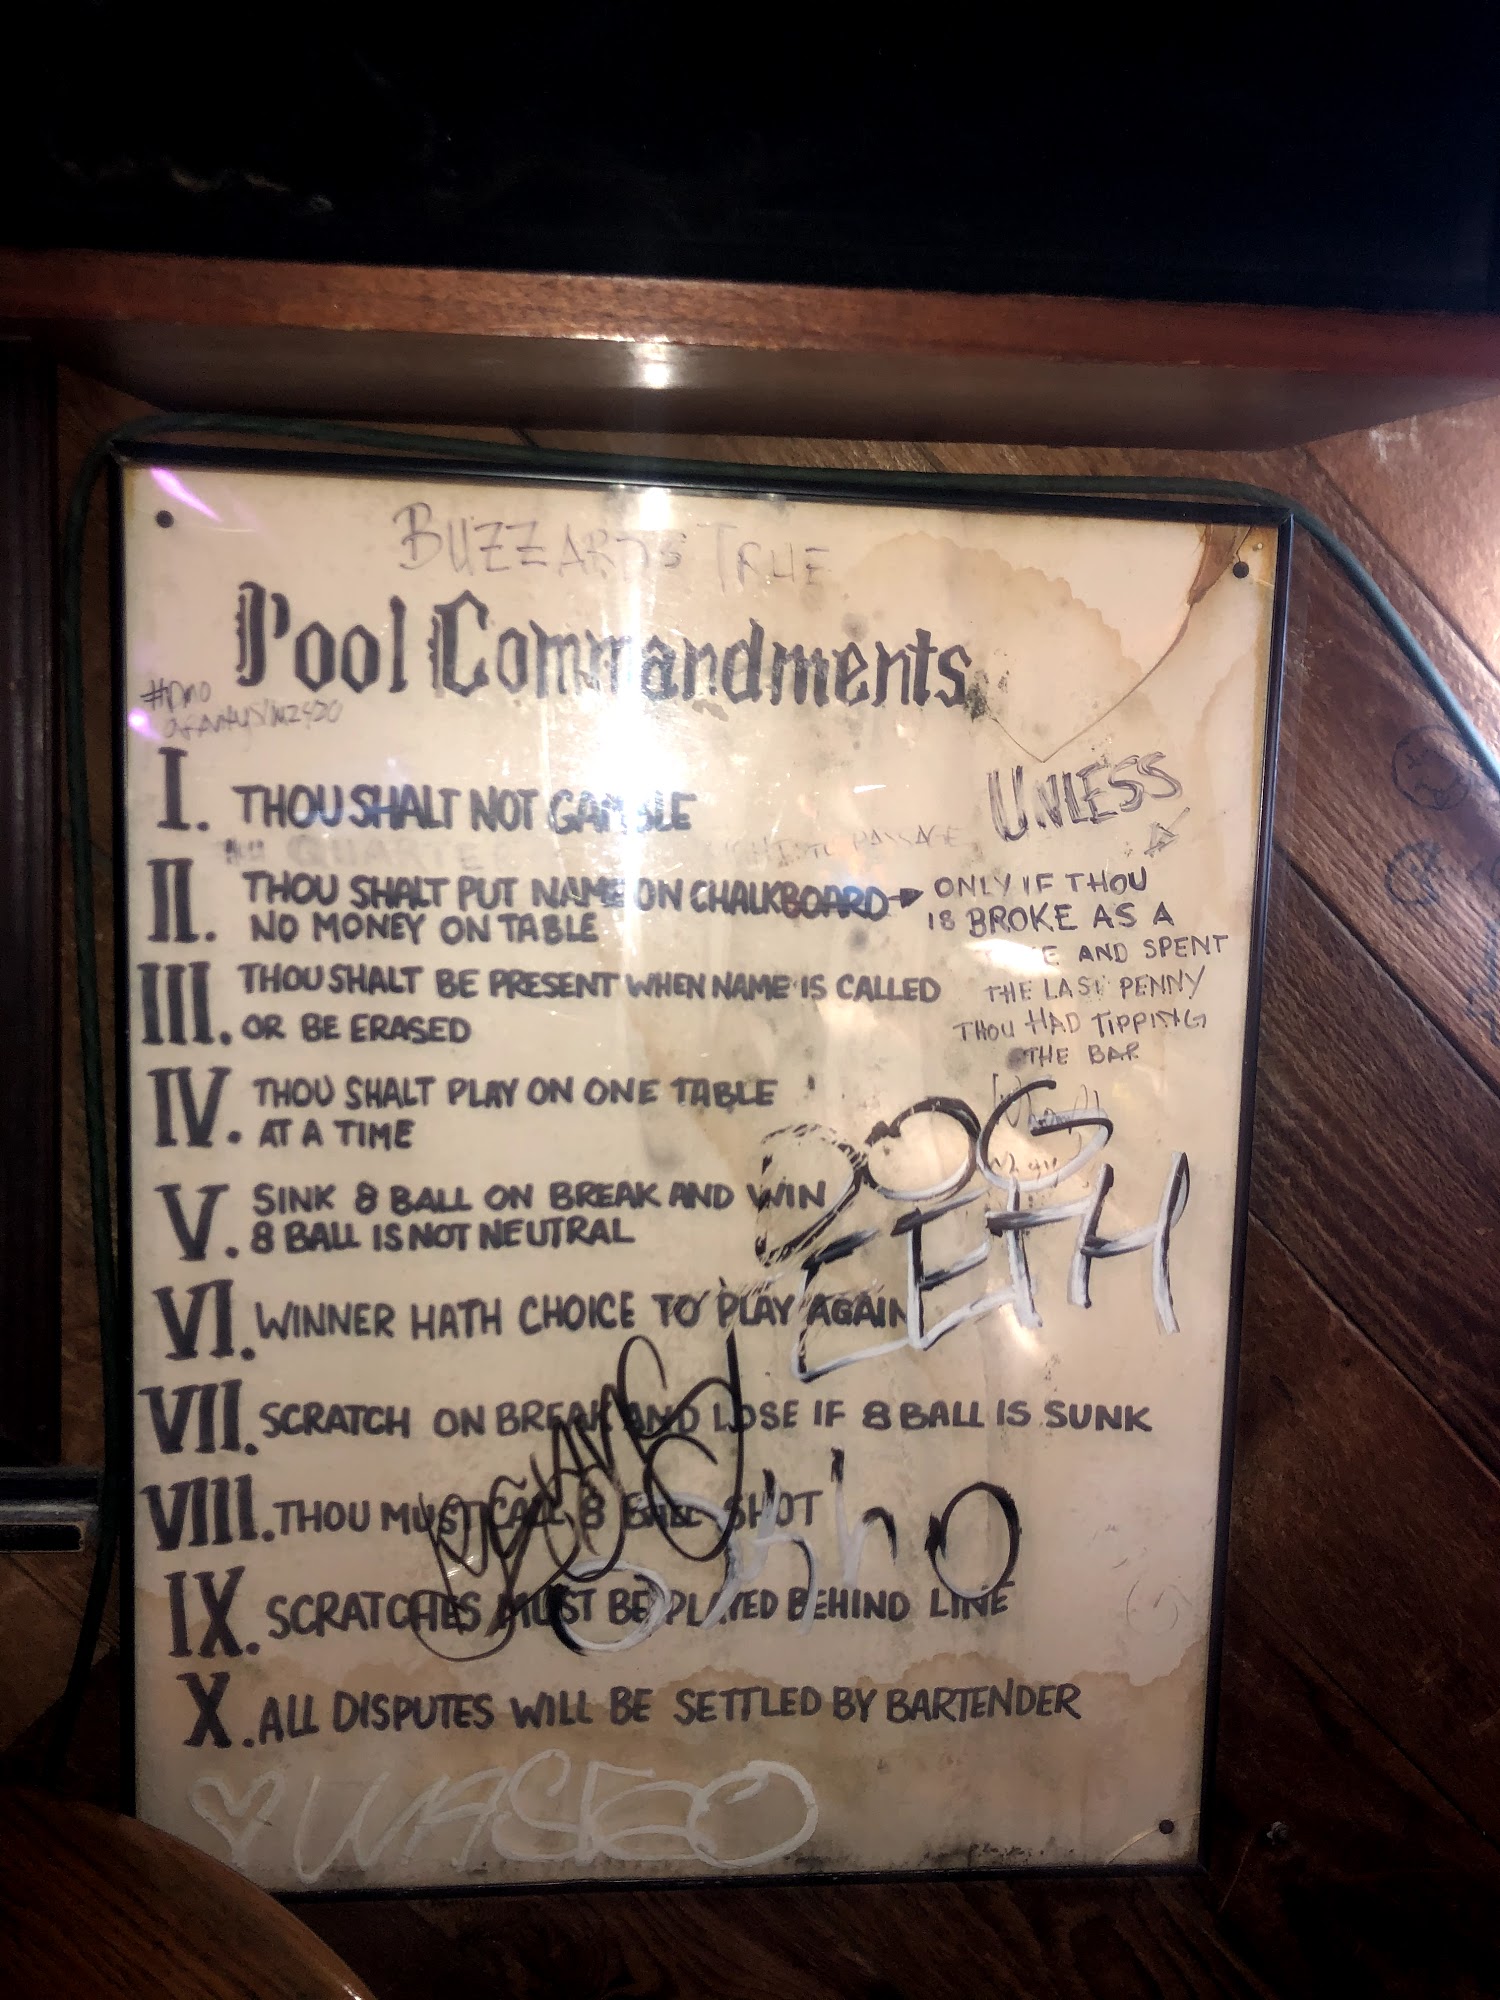 BUZZARDS TRUE
Pool Commandments
I. THOU SHALT NOT GAMBLE
UNLESS
II. THOU SHALT PUT NAME ON CHALKBOARD
NO MONEY ON TABLE
ONLY IF THOU
IS BROKE AS A
AND SPENT
THE LAST PENNY
THOU HAD TIPPING
THE BAR
III. THOU SHALT BE PRESENT WHEN NAME IS CALLED
OR BE ERASED
IV. THOU SHALT PLAY ON ONE TABLE
AT A TIME
V. SINK 8 BALL ON BREAK AND WIN
8 BALL IS NOT NEUTRAL
VI. WINNER HATH CHOICE TO PLAY AGAIN
VII. SCRATCH ON BREAK AND LOSE IF 8 BALL IS SUNK
VIII. THOU MUST CALL 8 BALL SHOT
IX. SCRATCHES MUST BE PLAYED BEHIND LINE
X. ALL DISPUTES WILL BE SETTLED BY BARTENDER